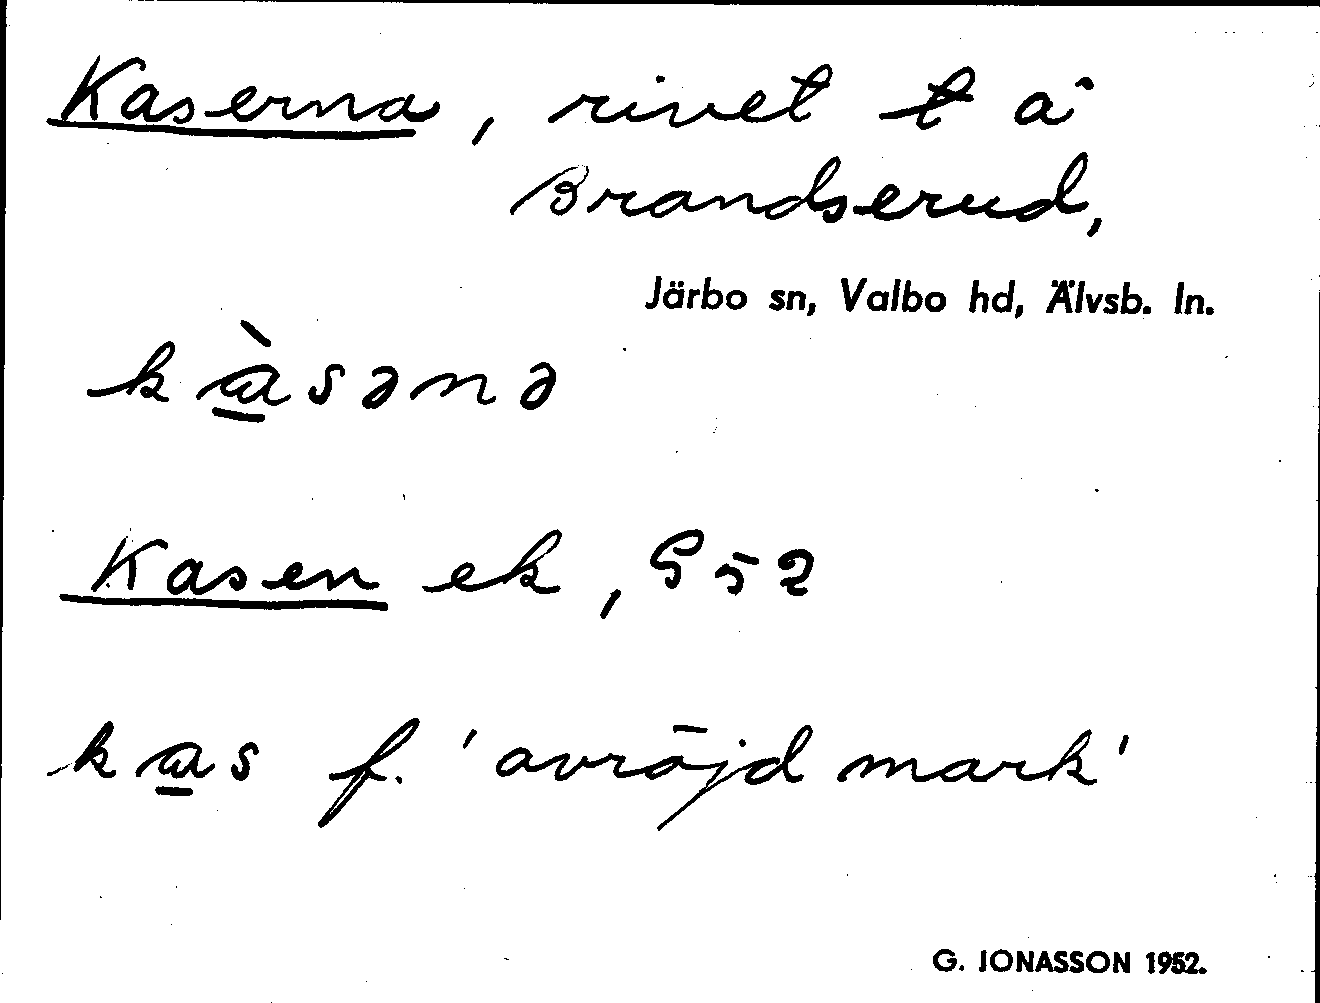 Kaserna, rivet t å
Brandserud,
Järbo sn, Valbo hd, Älvsb. ln.
kàsənə
Kasen ek, G 52
kas f. 'avröjd mark'
G. JONASSON 1952.